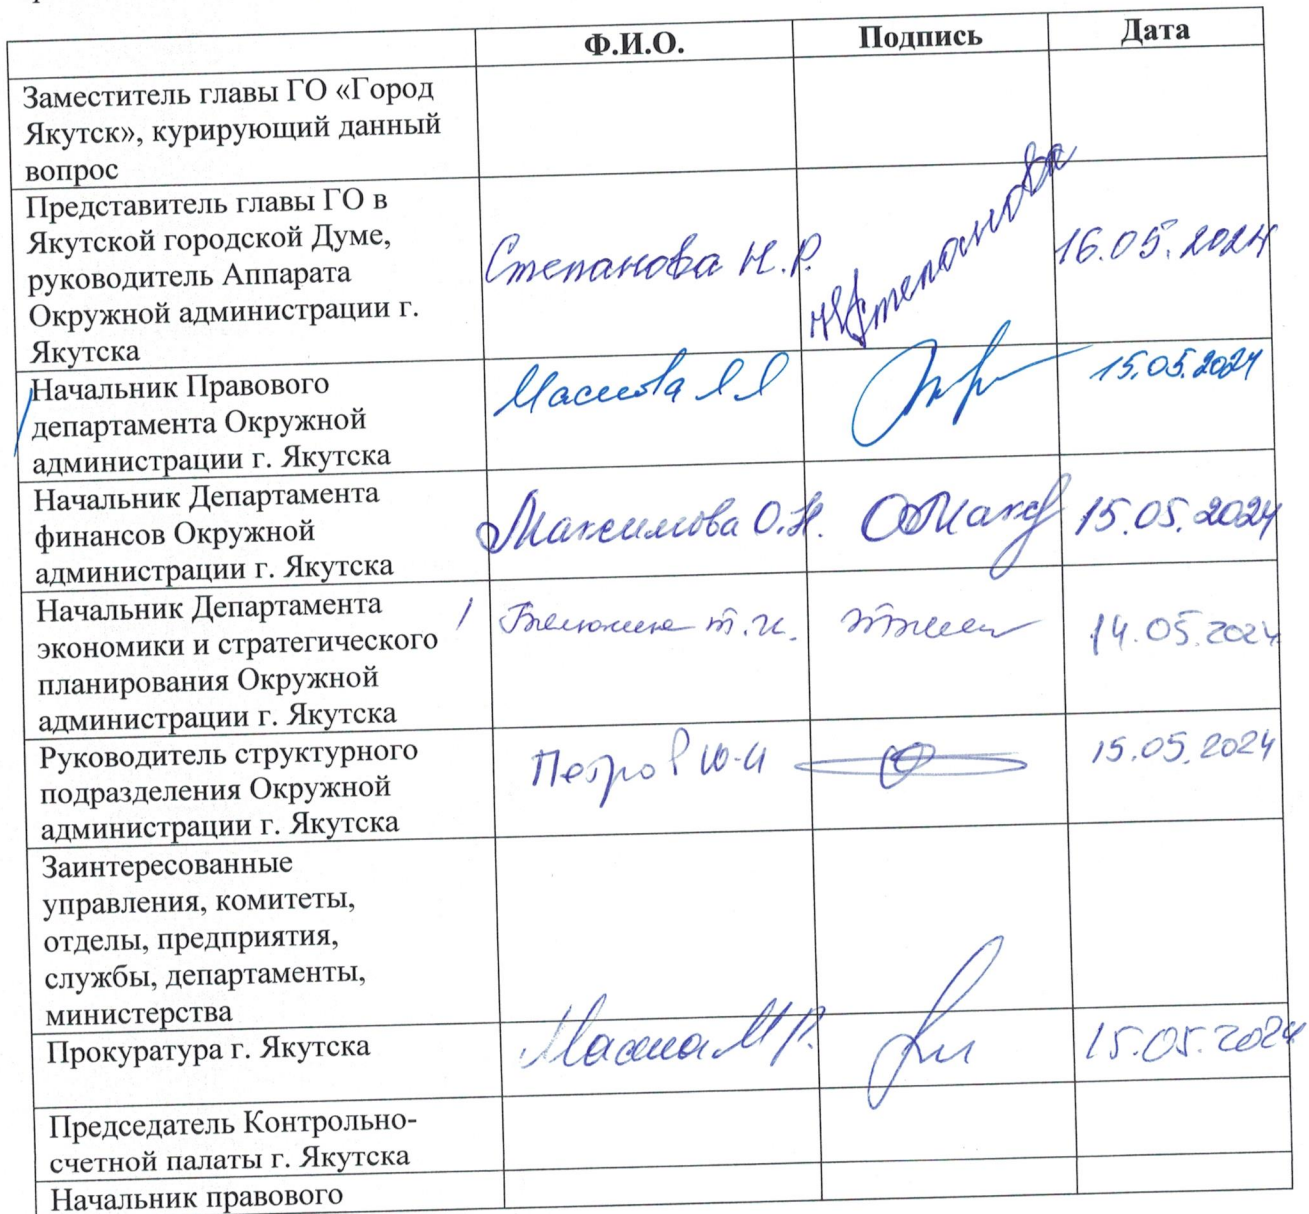 Ф.И.О. Подпись Дата
Заместитель главы ГО «Город
Якутск», курирующий данный
вопрос
Представитель главы ГО в
Якутской городской Думе,
руководитель Аппарата
Окружной администрации г.
Якутска
Степанова Н.Р. Степанова 16.05.2024
Начальник Правового
департамента Окружной
администрации г. Якутска
15.05.2024
Начальник Департамента
финансов Окружной
администрации г. Якутска
Максимова О.Н. 15.05.2024
Начальник Департамента
экономики и стратегического
планирования Окружной
администрации г. Якутска
Т.И. 14.05.2024
Руководитель структурного
подразделения Окружной
администрации г. Якутска
Петров Ю.И 15.05.2024
Заинтересованные
управления, комитеты,
отделы, предприятия,
службы, департаменты,
министерства
Прокуратура г. Якутска
15.05.2024
Председатель Контрольно-
счетной палаты г. Якутска
Начальник правового